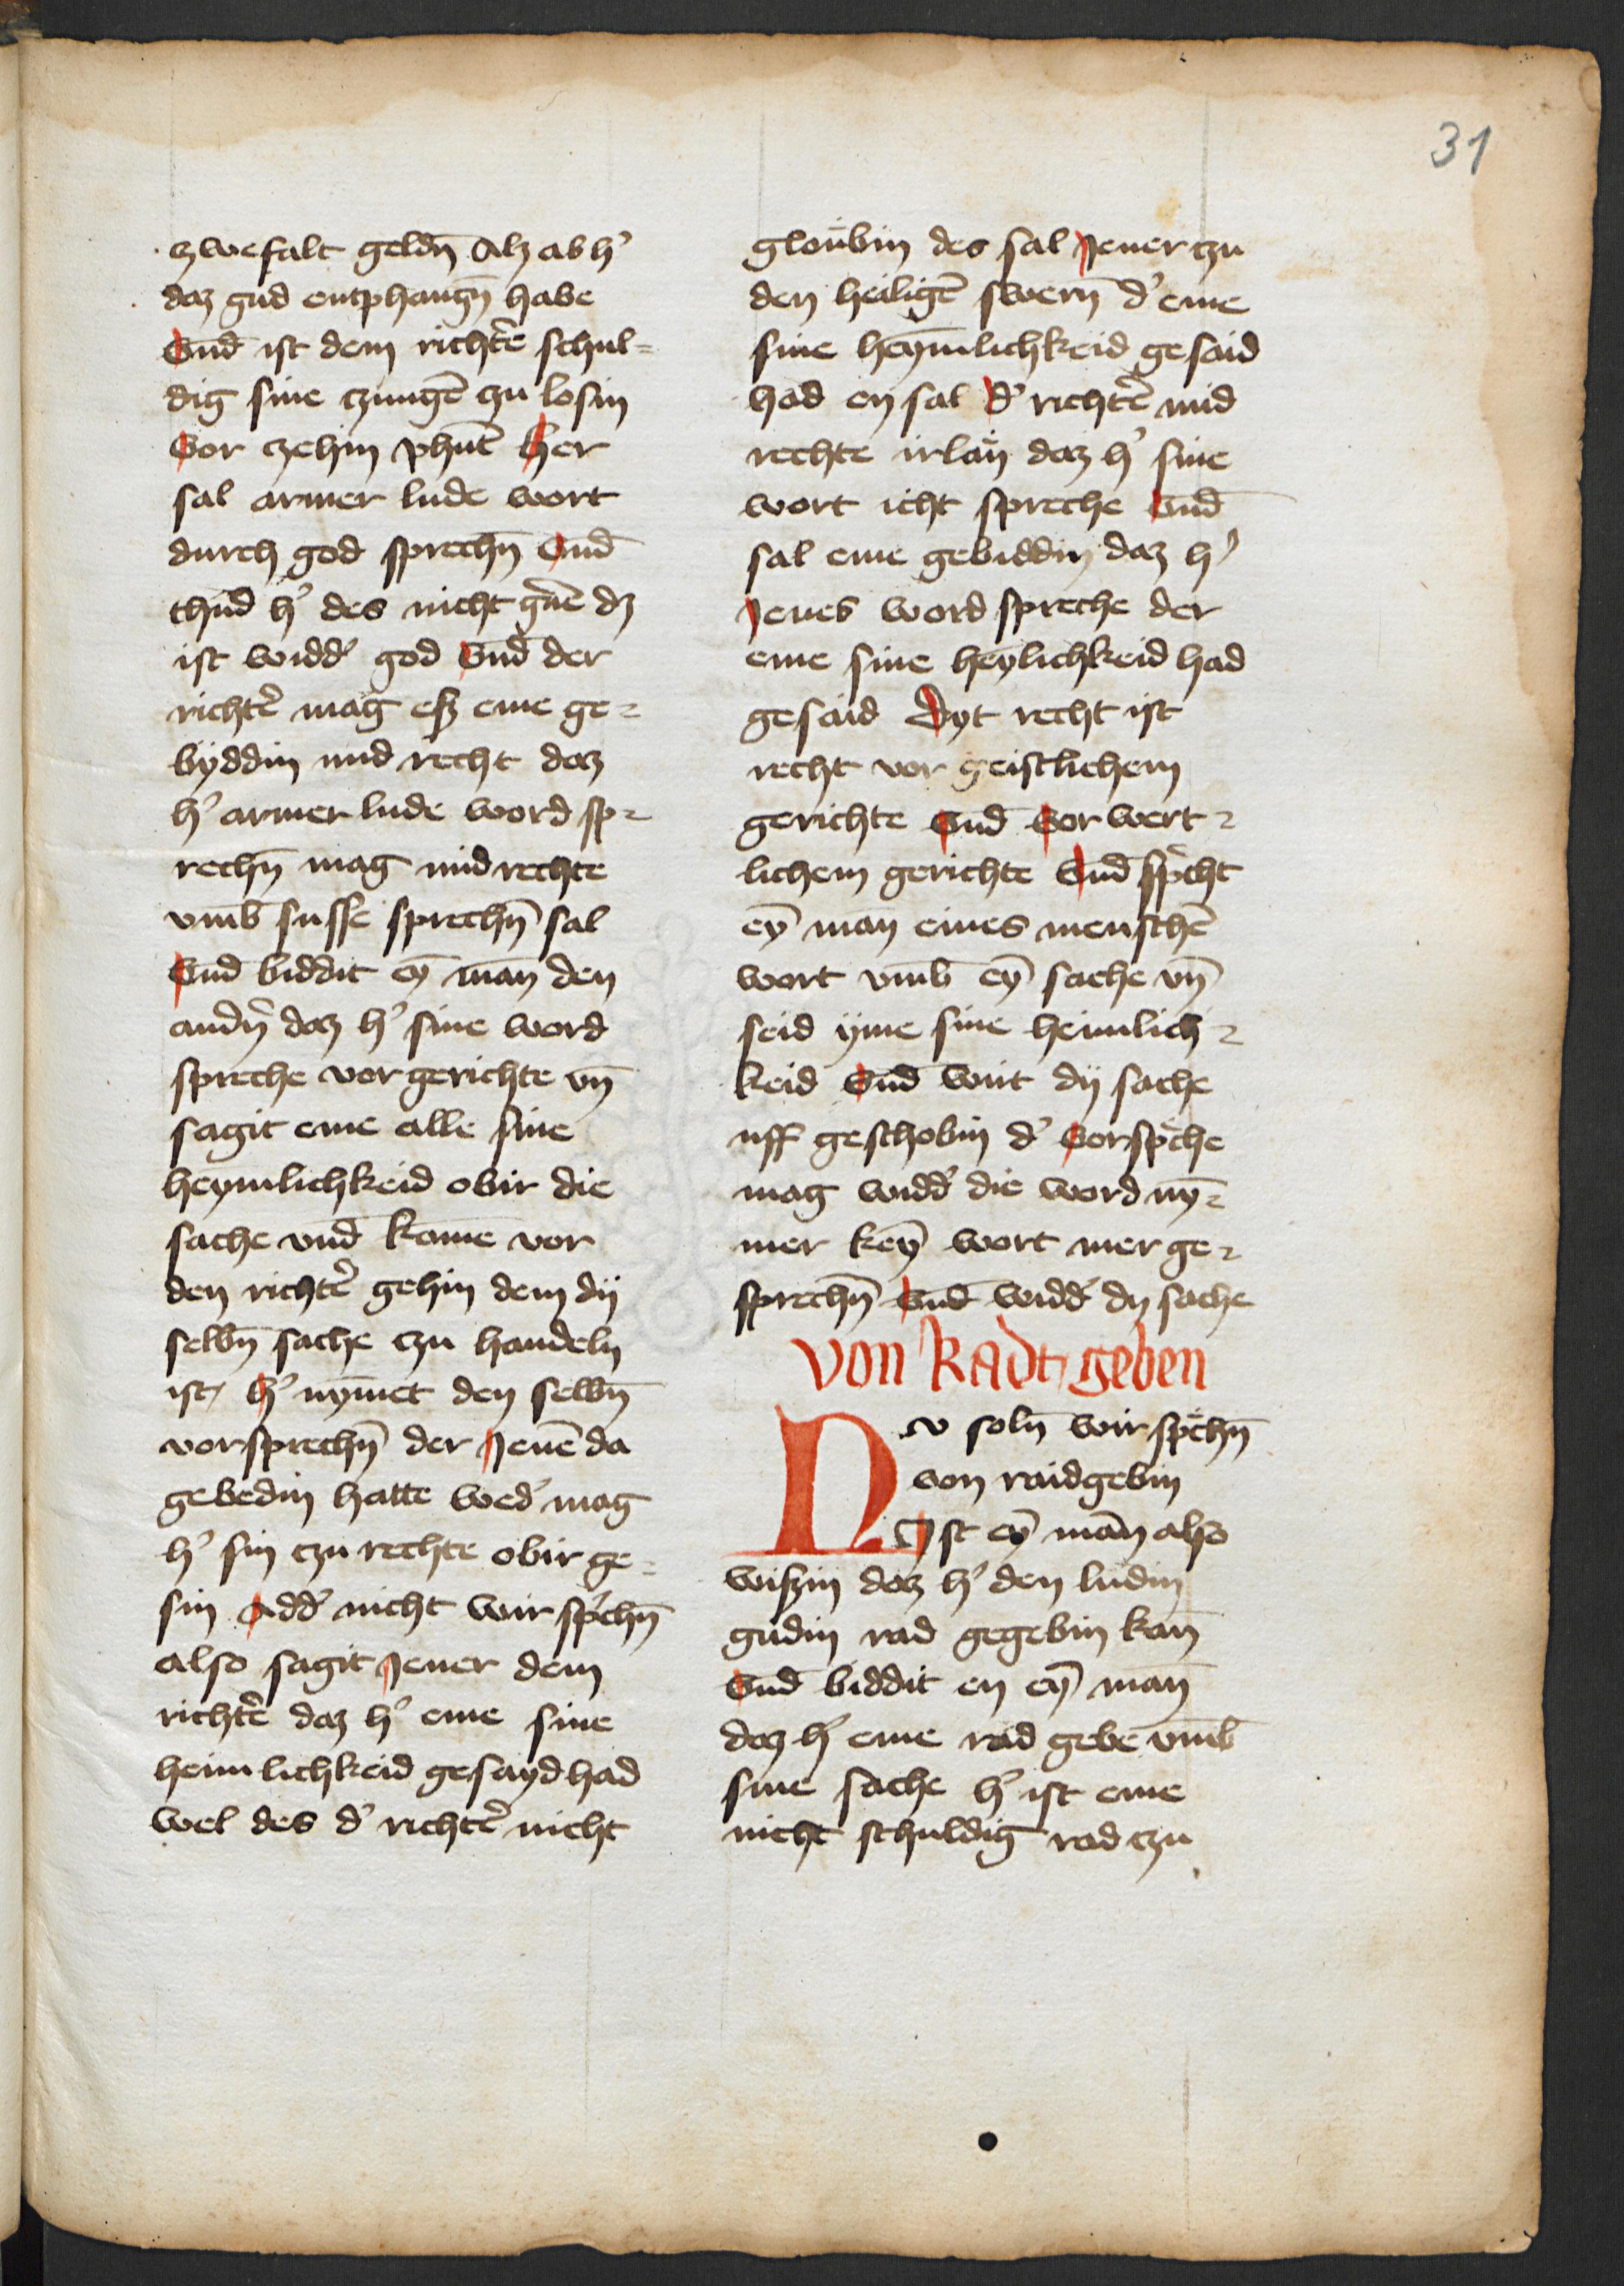 31
zwefalt geldn̄ Alz ab h'
daz gud entphangn̄ habe
Vnd̄ ist dem richt'e schul=
dig sine czungē czu losin
Vor czehin phūt Her
sal armer lude wort
durch god sprechn̄ Vnd̄
thud h' des nicht g'ne dz
ist widd' god Vnd̄ der
richt'e mag esz eme ge=
byddin mid recht daz
h' armer lude word sp=
rechn̄ mag mid rechte
vmb susse sprechn̄ sal
Vnd biddit eȳ man den
andn̄ daz h' sine word
spreche vor gerichte vn̄
sagit eme alle sine
heymlichkeid obir die
sache vnd̄ kame vor
den richt'e gehin dem dÿ
selbn̄ sache czu handeln
ist, h' nȳmet den selbn̄
vorsprechn̄ der Jenē da
gebedin hatte wed' mag
h' sin czu rechte obir ge=
sin Add' nicht wir sp'chn̄
also sagit Jener dem
richt'e daz h' eme sine
heimlichkeid gesayd had
wel des d' richt'e nicht
gloubin des sal Jener czu
den heiligē swern d' eme
sine heymlichkeid gesaid
had en sal d' richt'e mid
rechte irlan daz h' sine
wort icht spreche Vnd̄
sal eme gebiddin daz h'
Jenes word spreche der
eme sine heylichkeid had
gesaid Dyt recht ist
recht vor geistlichem
gerichte Vnd̄ Vor wert=
lichem gerichte Vnd̄ sp'cht
eȳ man eines menschē
wort vmb eȳ sache vn̄
seid yme sine heimlich=
keid Vnd̄ wirt dÿ sache
uff geschobin d' Vorsp'che
mag widd' die word nȳ=
mer keȳ wort mer ge=
sprechn̄ Vnd̄ widd' dy sache
Von Radt, geben
Nv soln̄ wir sp'chn̄
von raidgebin
Ist eȳ man also
wiszin daz h' den ludin
gudin rad gegebin kan
Vnd̄ biddit en eȳ man
daz h' eme rad gebe vmb
sine sache h' ist eme
nicht schuldig rad czu